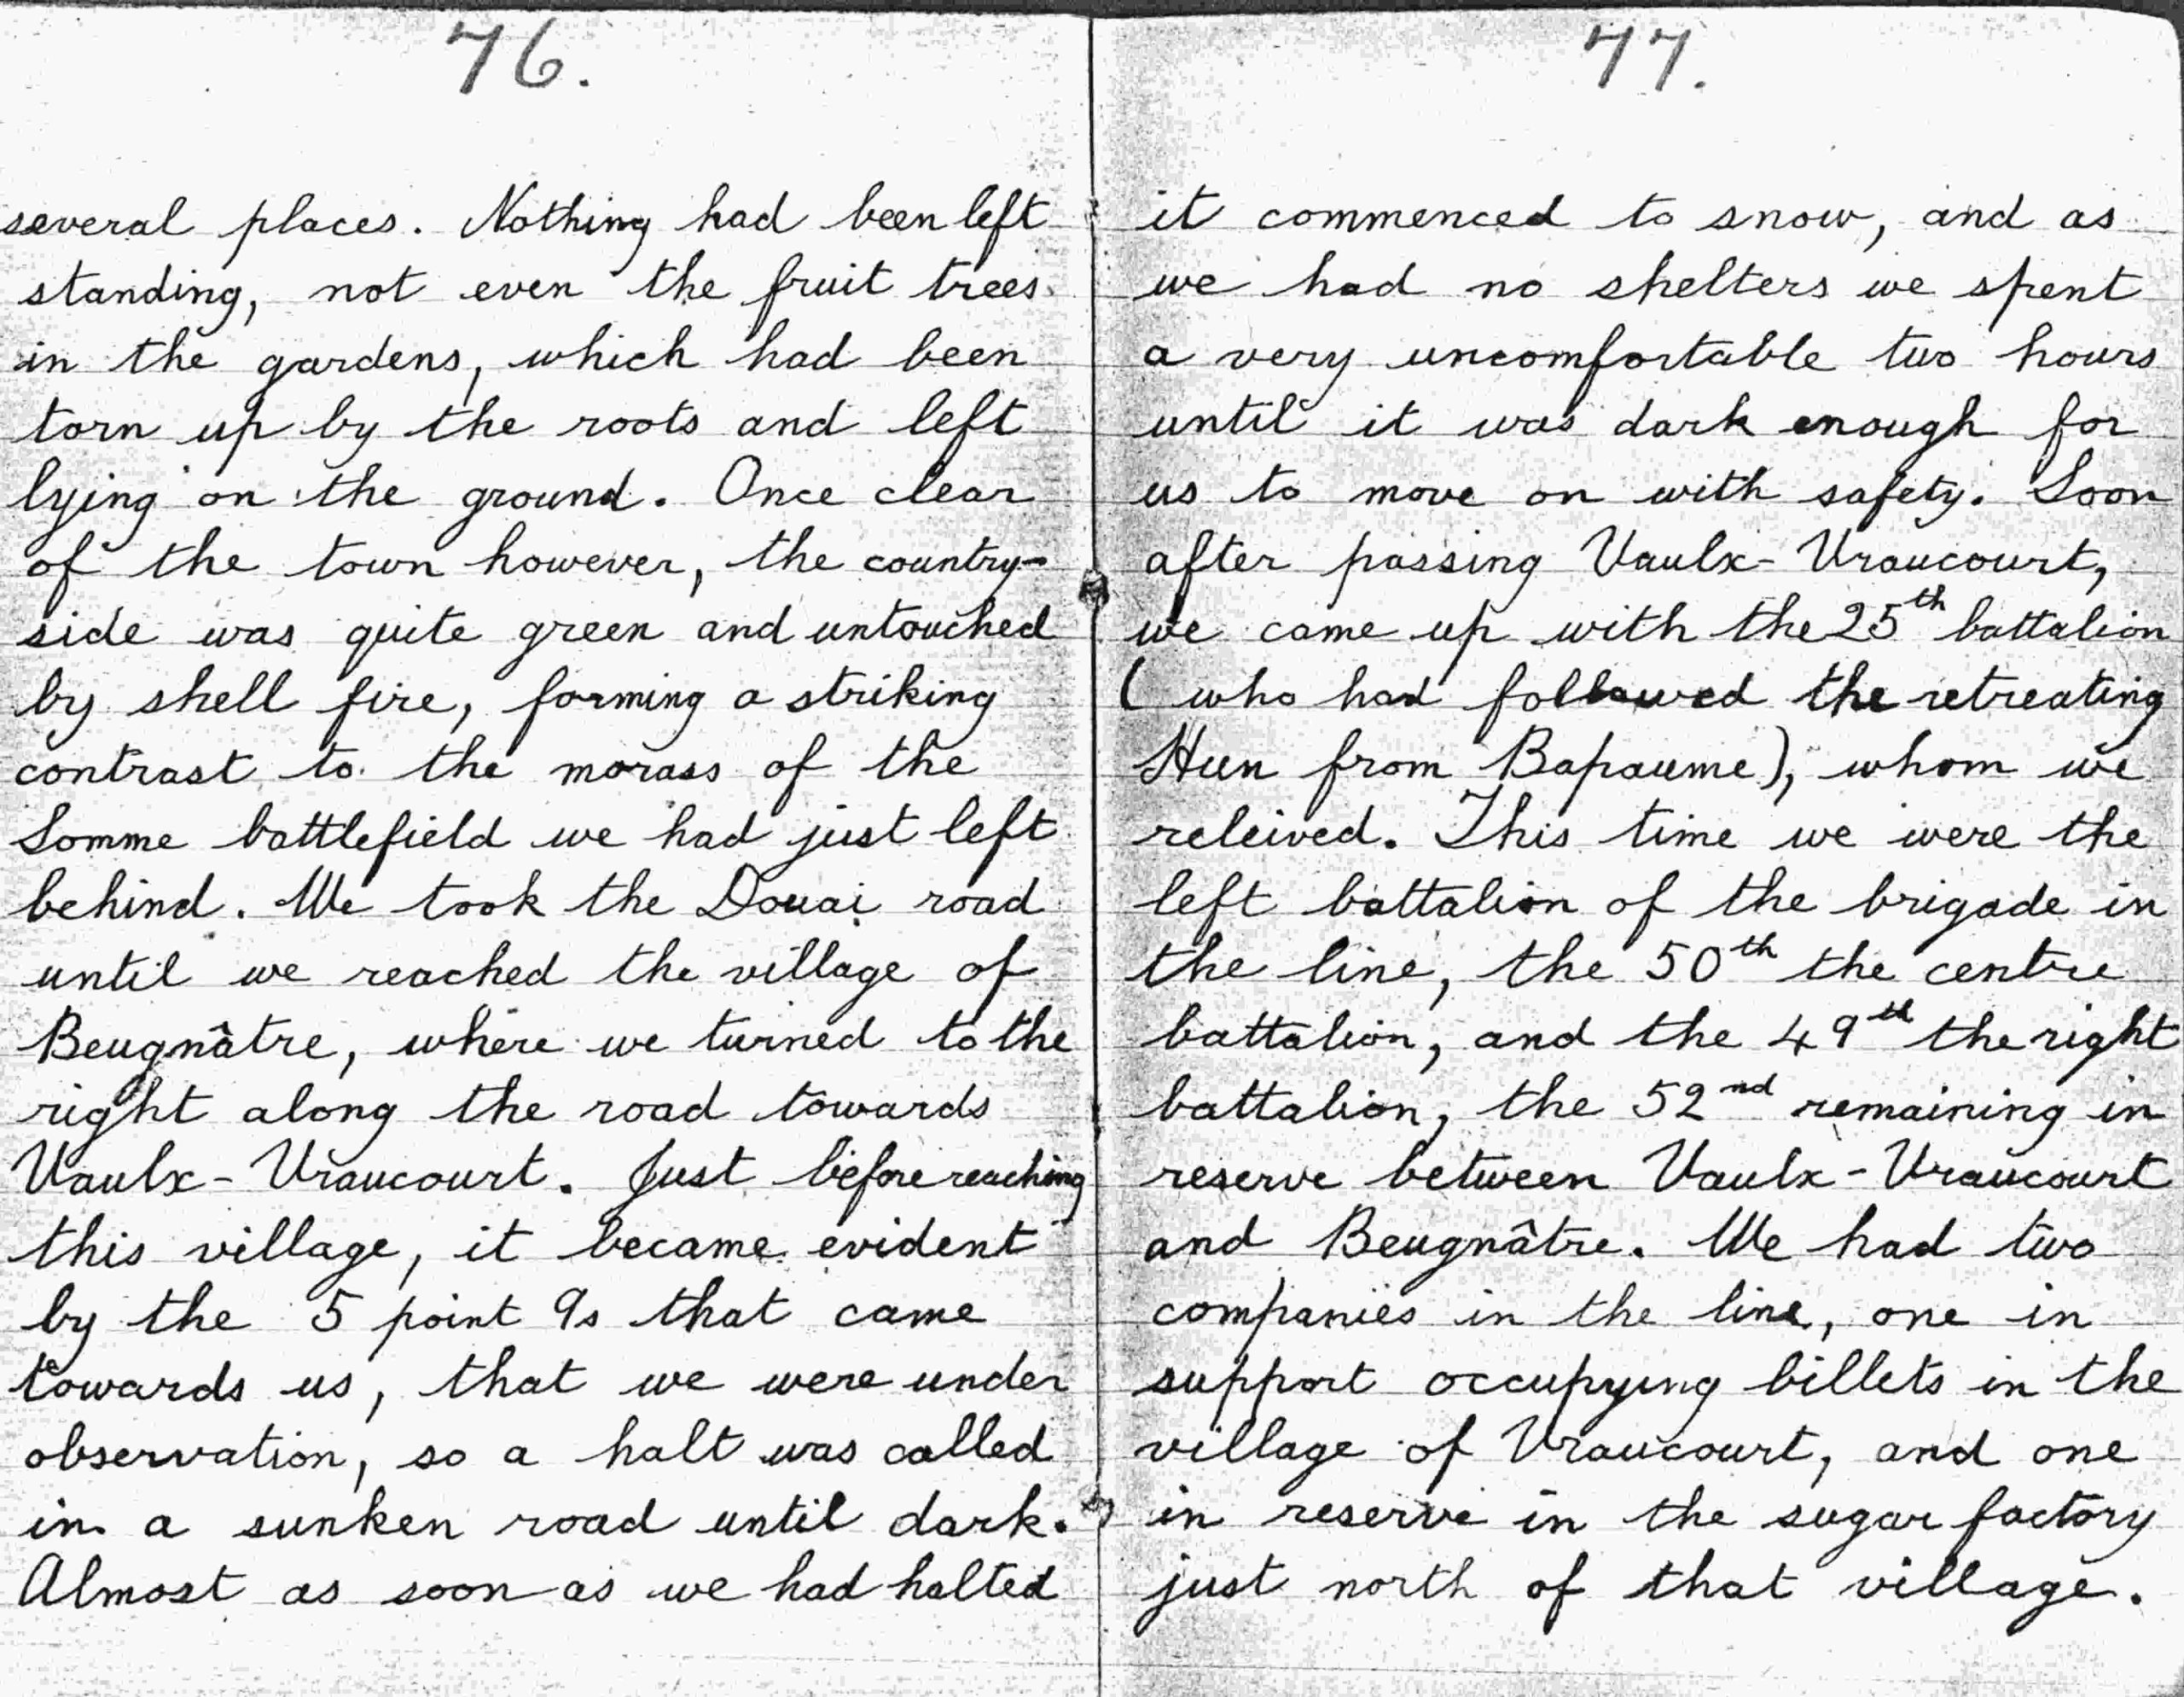 76.
several places. Nothing had been left
standing, not even the fruit trees
in the gardens, which had been
torn up by the roots and left
lying on the ground. Once clear
of the town however, the country-
side was quite green and untouched
by shell fire, forming a striking
contrast to the morass of the
Somme battlefield we had just left
behind. We took the Douai road
until we reached the village of
Beugnâtre, where we turned to the
right along the road towards
Vaulx-Vraucourt. Just before reaching
this village, it became evident
by the 5 point 9s that came
towards us, that we were under
observation, so a halt was called
in a sunken road until dark.
Almost as soon as we had halted
77.
it commenced to snow, and as
we had no shelters we spent
a very uncomfortable two hours
until it was dark enough for
us to move on with safety. Soon
after passing Vaulx-Vraucourt,
we came up with the 25th battalion
(who had followed the retreating
Hun from Bapaume), whom we
releived. This time we were the
left battalion of the brigade in
the line, the 50th the centre
battalion, and the 49th the right
battalion, the 52nd remaining in
reserve between Vaulx-Vraucourt
and Beugnâtre. We had two
companies in the line, one in
support occupying billets in the
village of Vraucourt, and one
in reserve in the sugar factory
just north of that village.